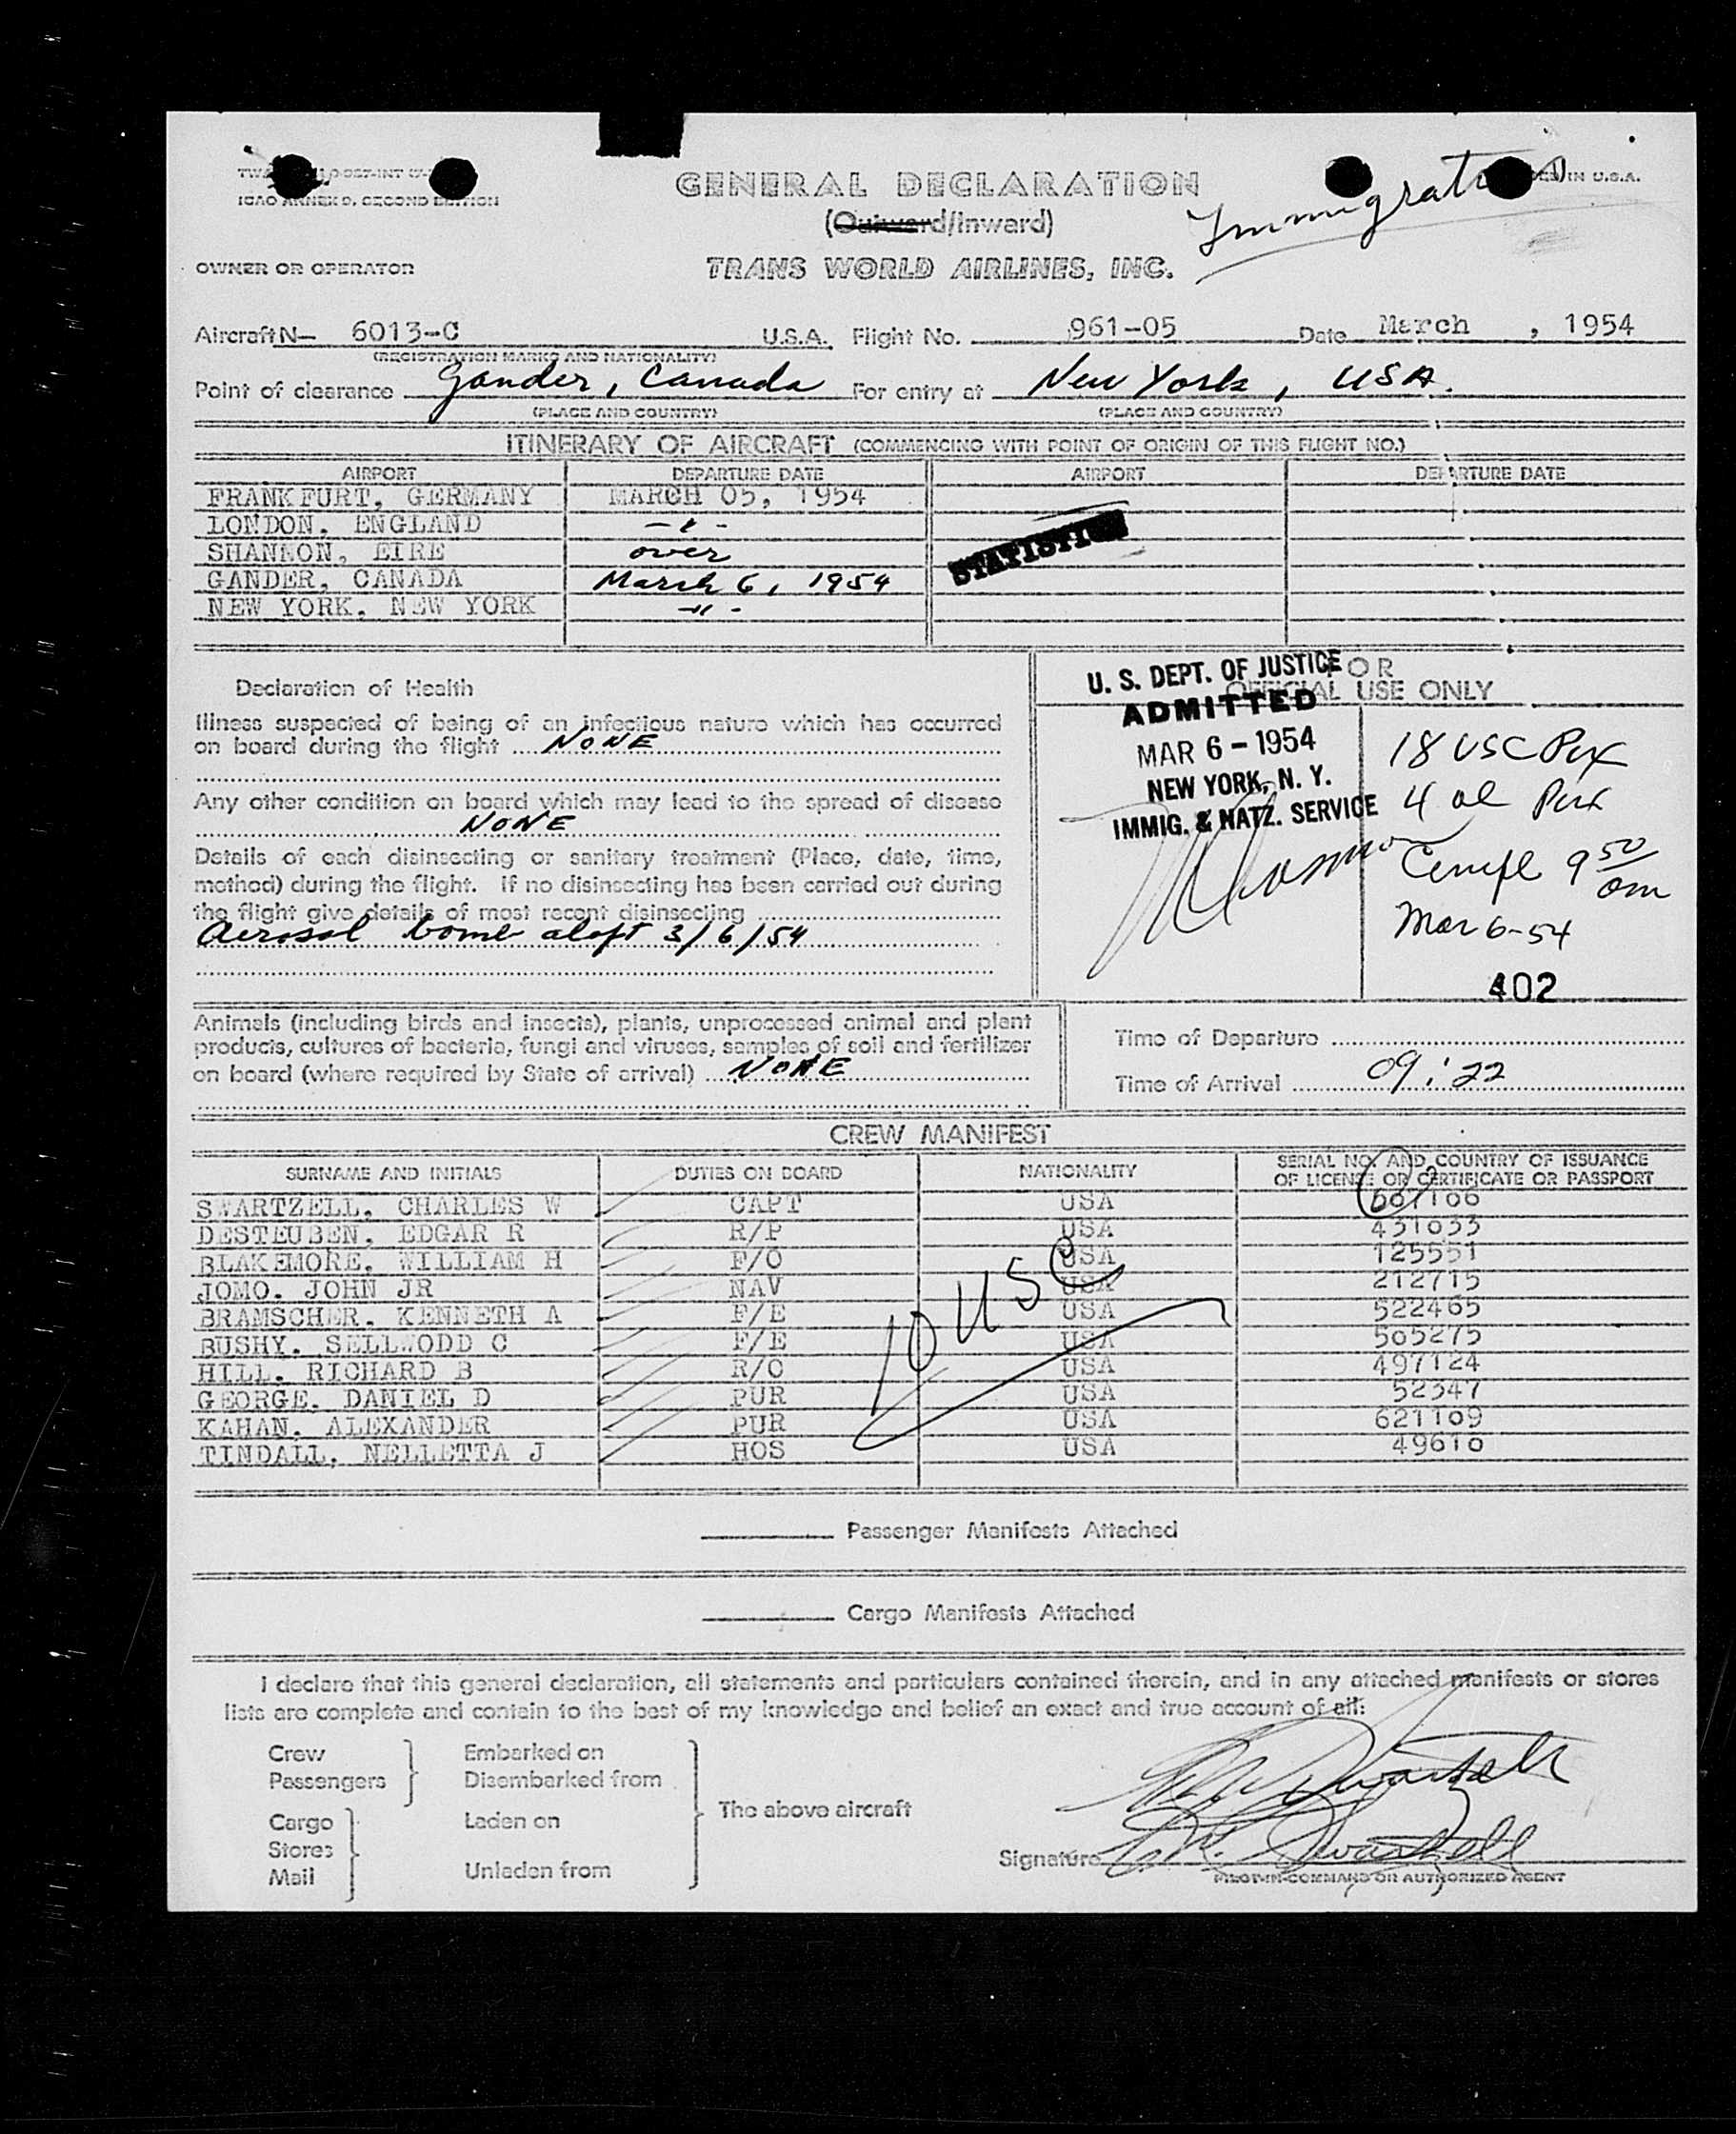 ICAO ANNEX 9, SECOND EDITION
IN U.S.A.
GENERAL DECLARATION
(Outward/Inward)
Immigration
OWNER OR OPERATOR
TRANS WORLD AIRLINES, INC.
Aircraft N— 6013-C U.S.A. Flight No. 961-05 Date March , 1954
(REGISTRATION MARKS AND NATIONALITY)
Point of clearance Gander, Canada For entry at New York, USA.
(PLACE AND COUNTRY) (PLACE AND COUNTRY)
ITINERARY OF AIRCRAFT (COMMENCING WITH POINT OF ORIGIN OF THIS FLIGHT NO.)
AIRPORT DEPARTURE DATE AIRPORT DEPARTURE DATE
FRANKFURT, GERMANY MARCH 05, 1954
LONDON, ENGLAND -"-
SHANNON, EIRE over
GANDER, CANADA March 6, 1954
NEW YORK, NEW YORK -"-
Declaration of Health
Illness suspected of being of an infectious nature which has occurred
on board during the flight NONE
Any other condition on board which may lead to the spread of disease
NONE
Details of each disinsecting or sanitary treatment (Place, date, time,
method) during the flight. If no disinsecting has been carried out during
the flight give details of most recent disinsecting
Aerosol bomb aloft 3/6/54
FOR
OFFICIAL USE ONLY
U. S. DEPT. OF JUSTICE
ADMITTED
MAR 6 - 1954
NEW YORK, N. Y.
IMMIG. & NATZ. SERVICE
18 USC Pax
4 al Pax
9 50 am
Mar 6-54
402
Animals (including birds and insects), plants, unprocessed animal and plant
products, cultures of bacteria, fungi and viruses, samples of soil and fertilizer
on board (where required by State of arrival) NONE
Time of Departure
Time of Arrival 09:22
CREW MANIFEST
SURNAME AND INITIALS DUTIES ON BOARD NATIONALITY SERIAL NO. AND COUNTRY OF ISSUANCE
OF LICENSE OR CERTIFICATE OR PASSPORT
SWARTZELL, CHARLES W CAPT USA
DESTEUBEN, EDGAR R R/P USA 431033
BLAKEMORE, WILLIAM H F/O USA 125551
JOMO. JOHN JR NAV USA 212715
BRAMSCHER, KENNETH A F/E USA 522465
BUSHY, SELLWODD C F/E USA 505275
HILL, RICHARD B R/O USA 497124
GEORGE, DANIEL D PUR USA 52347
KAHAN, ALEXANDER PUR USA 621109
TINDALL, NELLETTA J HOS USA 49610
10 USC
Passenger Manifests Attached
Cargo Manifests Attached
I declare that this general declaration, all statements and particulars contained therein, and in any attached manifests or stores
lists are complete and contain to the best of my knowledge and belief an exact and true account of all:
Crew Embarked on
Passengers Disembarked from
The above aircraft
Cargo Laden on
Stores
Mail Unladen from
Signature C. W. Swartzell
PILOT-IN-COMMAND OR AUTHORIZED AGENT